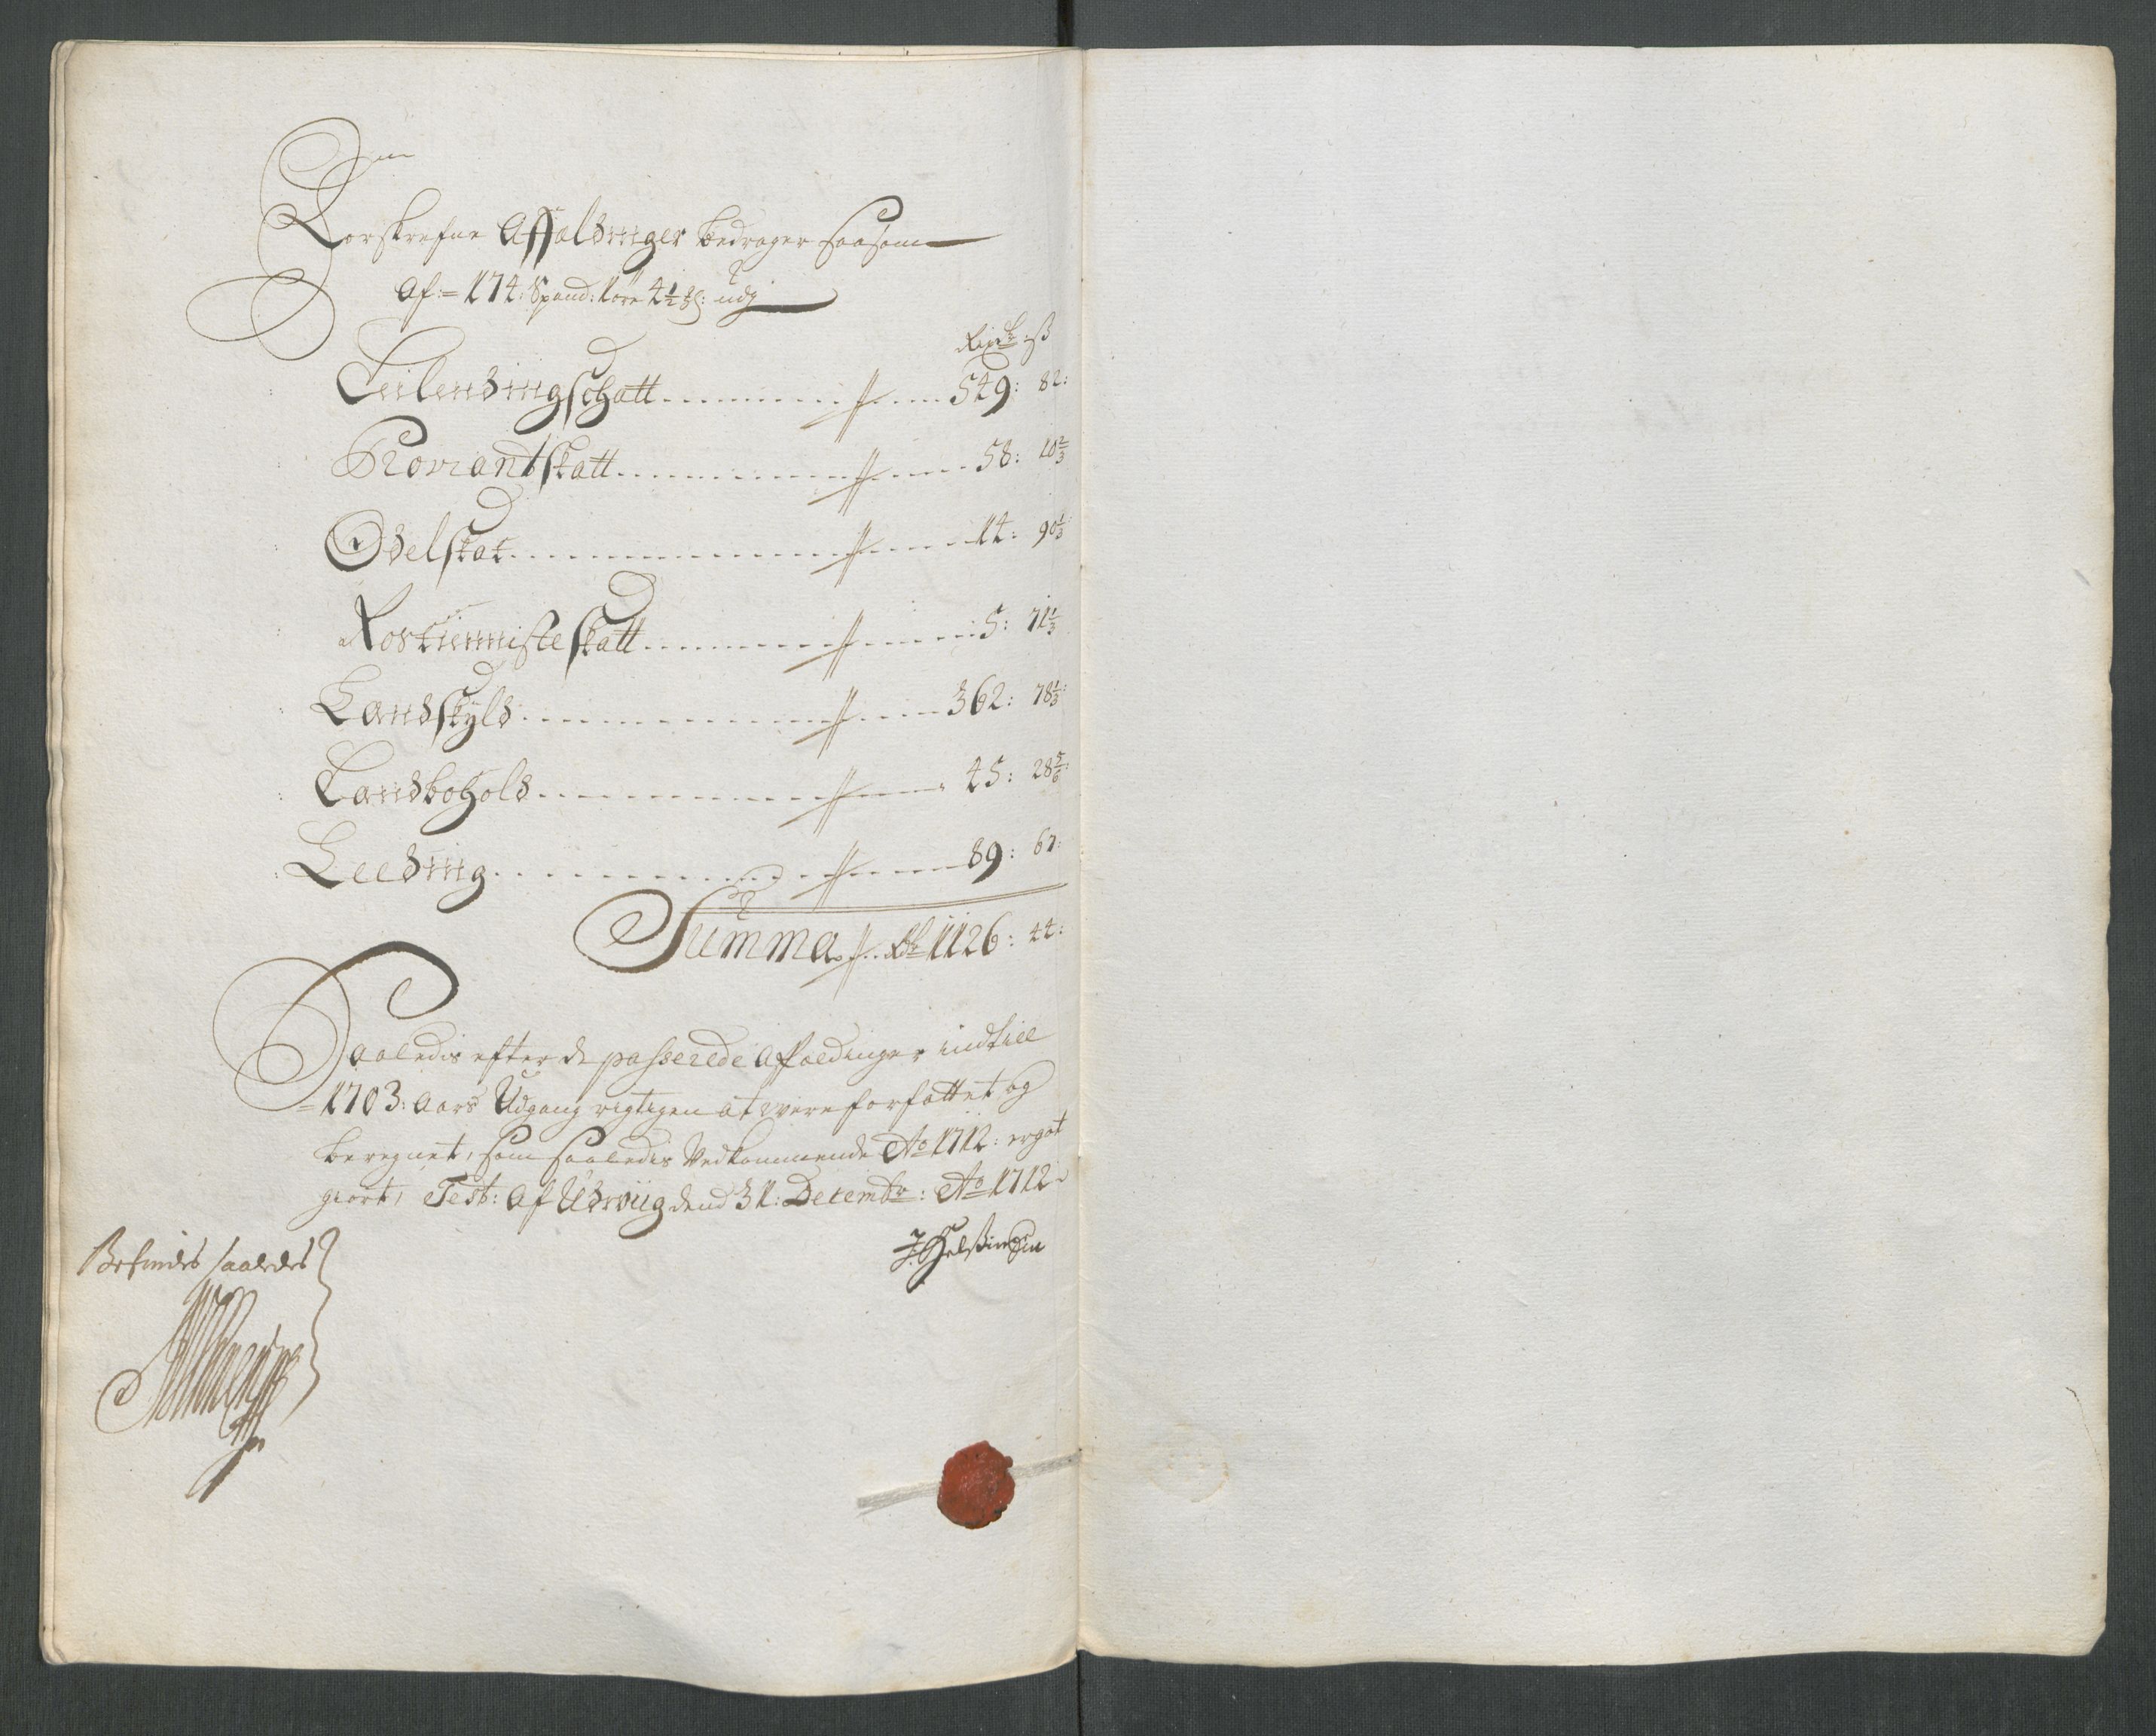 Forskrefne Affaldinger bedrager saasom
Af:= 174: Spand: 1 øre 4 1/2 udj
Rixdr ß
Leilendingschatt 549: 82:
Proviantskatt 58: 10 2/3
Odelskat 14: 90 1/3
Rostienniste skatt 5: 71 1/3
Landskyld 362: 78 1/3:
Landbohold 45: 28 5/6:
Leeding 89: 67:
Summa Rdr 1126: 44:
Saaledis efter de passerede Affaldinger indtill
=1703: Aars Udgang rigtigen at were forfattet og
beregnet, som saaledis Vedkommende Ao 1712: er
giort, Test: Af Udwiig dend 31: Decembr: Ao 1712
Befindes saaledes